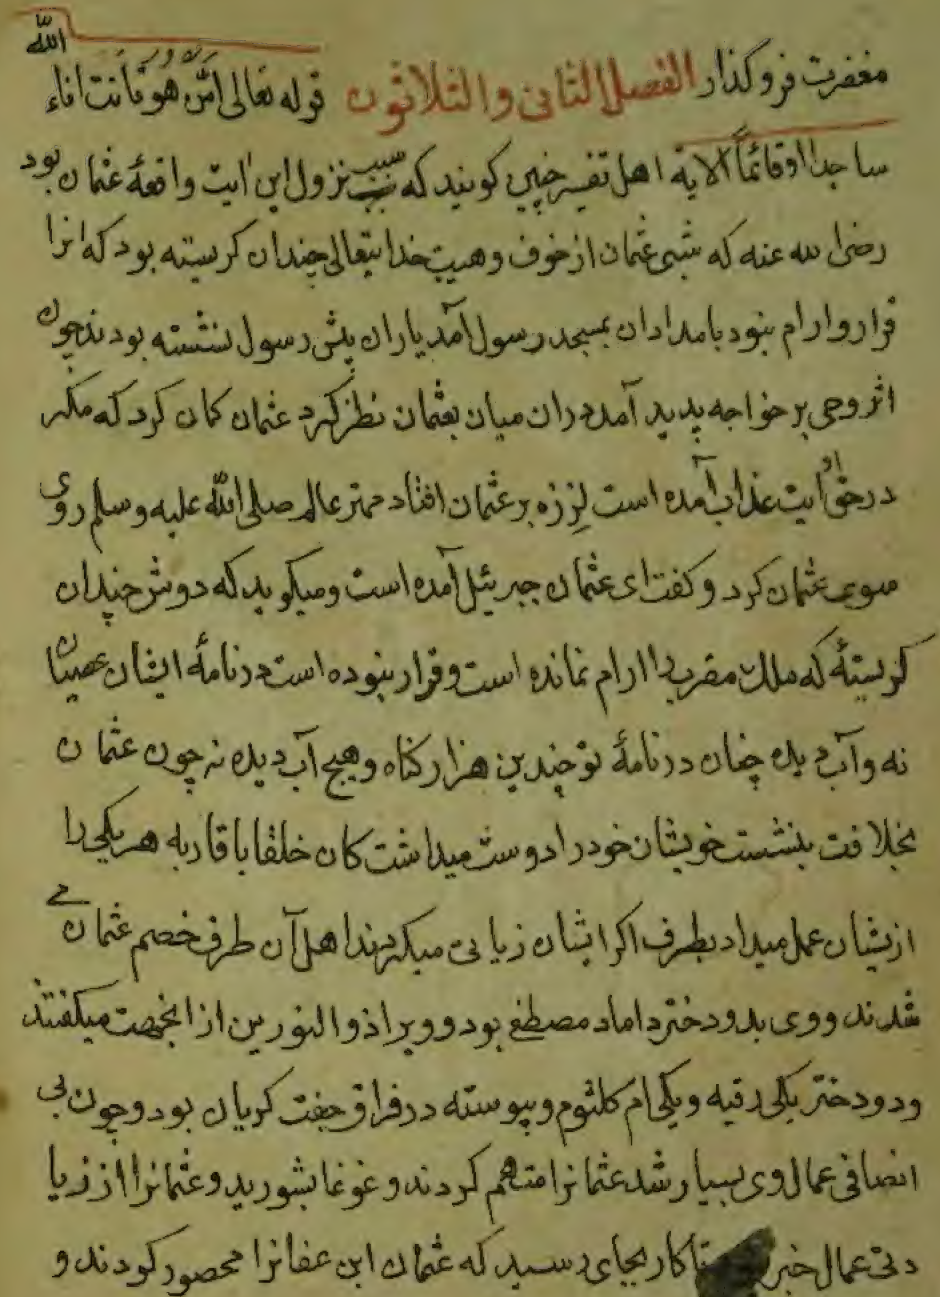 مغفرت فرو کذار الفصل الثانی والثلاثون قوله تعالی امّن هو قانت اناء اللّه
ساجدا اوقائماً الایة اهل تفسیر چنین کویند که سبب نزول این ایت واقعهٔ عثمان بود
رضی الله عنه که شبی عثمان از خوف و هیبت خدایتعالی چندان کریسته بود که انرا
قرار و ارام نبود بامدادان بمسجد رسول آمد یاران پیش رسول نشسته بودند چون
اثر وحی بر خواجه پدید آمد دران میان بعثمان نظر کرد عثمان کمان کرد که مکر
درحق او ایت عذاب آمده است لرزه بر عثمان افتاد مهتر عالم صلی اللّه علیه وسلم روی
سوی عثمان کرد و کفت ای عثمان جبریئل آمده است و میکوید که دوش چندان
کریستهٔ که ملک مقرب را ارام نمانده است و قرار نبوده است در نامهٔ ایشان عصیان
نه و آب دیده چنان در نامهٔ تو چندین هزار کناه و هیچ آب دیده نه چون عثمان
بخلافت بنشست خویشان خود را دوست میداشت کان خلفا باقاربه هر یکی را
ازیشان عمل میداد بطرف اکر ایشان زیانی میکردند اهل آن طرف خصم عثمان می
شدند و وی بدو دختر داماد مصطفی بود و ویرا ذوالنورین از انجهت میکفتند
و دو دختر یکی رقیه و یکی ام کلثوم و پیوسته در فراق جفت کریان بود و چون بی
انصافی عمال وی بسیار شد عثمانرا متهم کردند و غوغا بشورید و عثمانرا از زیا
دتی عمال خبر تا کار بجای رسید که عثمان ابن عفانرا محصور کودند و